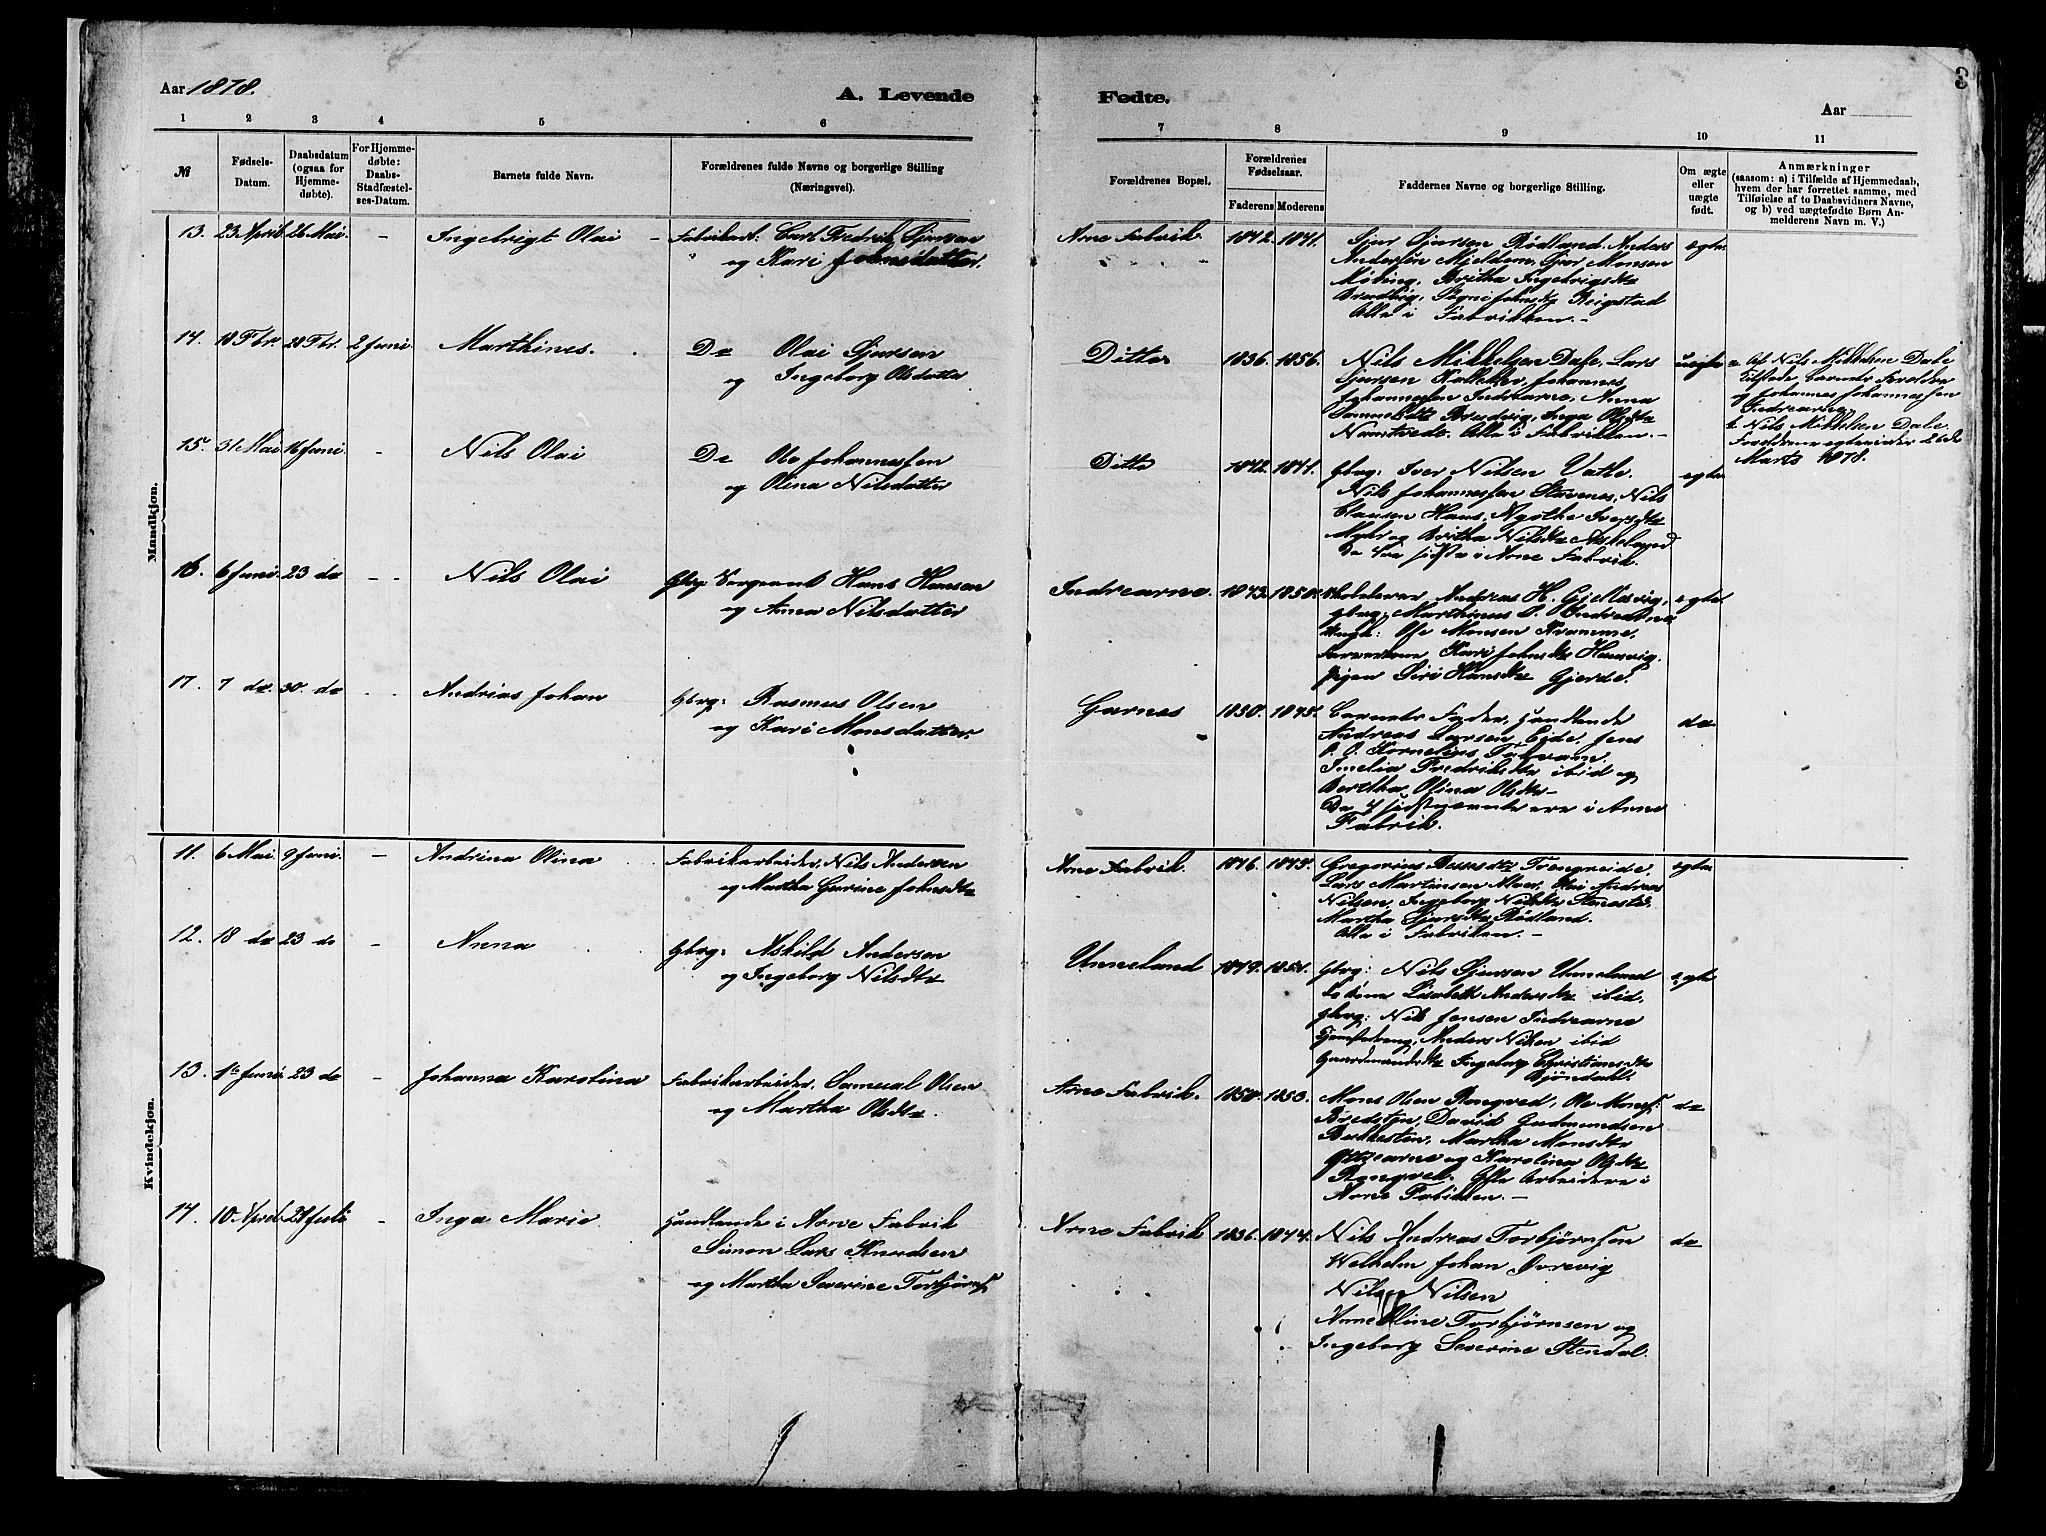 3
Aar 1878.
A. Levende
Fødte.
Aar
1 2 3 4 5 6 7 8 9 10 11
№
Fødsels-
Datum.
Daabsdatum
(ogsaa for
Hjemme-
døbte).
For Hjemme-
døbte:
Daabs-
Stadfæstel-
ses-Datum.
Barnets fulde Navn.
Forældrenes fulde Navne og borgerlige Stilling
(Næringsvei).
Forældrenes Bopæl.
Forældrenes
Fødselsaar.
Faderens Moderens
Faddernes Navne og borgerlige Stilling.
Om ægte
eller
uægte
født.
Anmærkninger
(saasom: a) i Tilfælde af Hjemmedaab,
hvem der har forrettet samme, med
Tilføielse af to Daabsvidners Navne,
og b) ved uægtefødte Børn An-
melderens Navn m. V.)
Mandkjøn.
13. 23 April 26 Mai. - Ingebrigt Olai
Carl Fredrik Sjursen
og Kari Johnsdatter.
Arne Fabrik 1842. 1841.
Sjur Sjursen Rødland, Anders
Andersen Mjeldem, Sjur Monsen
Britha Ingebrigsdtr
Alle i Fabrikken.-
egte
14. 18 Fbr. 28 Fbr. 2 Juni Marthines.
De Olai Sjursen
og Ingeborg Olsdatter
Ditto 1836. 1856.
Nils Mikkelsen Dale, Lars
Sjursen Johannes
Johannessen Indrearne, Anna
Inga Olsdtr
Alle i Fabrikken.-
uegte
a Af Nils Mikkelsen Dale
Tilstede Barnets Foreldre
og Johannes Johannessen
Indrearne
b Nils Mikkelsen Dale.
Foreldrene egtevider 26de
Marts 1878.
15. 31 Mai 16 Juni. - Nils Olai
De Ole Johannessen
og Olina Nilsdatter
Ditto 1842. 1841.
Gbrg: Iver Nilsen
Nils Johannessen Stavenes, Nils
Clausen Agothe Iversdtr
og Britha Nilsdtr Askeland
De 4re sidste i Arne Fabrik.
egte
16. 6 Juni. 23 de - Nils Olai
Gbrg: Sergeant Hans Hansen
og Anna Nilsdatter
Indrearne. 1843. 1850.
Andreas H. Gjeldsvig,
gbrg: Marthinus
Ole Monsen Kramme,
Kari Johnsdtr
Pigen Siri Hansdtr Gjerde.
egte
17. 7 de 30. de - Andrias Johan
Gbrg: Rasmus Olsen
og Kari Monsdatter.
Garnes 1830. 1845.
Barnets Fader, Handlende
Andreas Larsen Eide, Jens
Fredriksdtr ibid og
Bertha Olina Olsdtr-
De 4 sidstnævnte ere i Arne
Fabrik.
de
Kvindekjøn.
11. 6 Mai. 9 Juni. - Andrina Olina
Fabrikarbeider, Nils Andersen
og Martha Gurine Johnsdtr
Arne Fabrik. 1846. 1845.
Lars Martinsen Alver, Olai Andreas
Nilsen, Ingeborg
Martha Sjursdtr Rødland.
Alle i Fabriken.-
egte
12. 18 de 23 de - Anna
Gbrg: Askild Andersen
og Ingeborg Nilsdtr
Unneland 1849. 1854.
Gbrg: Nils Sjursen Unneland
Kone Lisabeth Andersdtr ibid.
Gbrg: Nils Jensen Indrearne
Anders Nilsen ibid
Gaardmandsdtr Ingeborg Christiansdtr
Bjøndahl.
egte
13. 1ste Juni 23 de - Johanna Karolina
Fabrikarbeider, Samuel Olsen
og Martha Olsdtr.
Arne Fabrik. 1850. 1853.
Mons Olsen Rongved, Ole Mons.
David Gudmundsen
Martha Monsdtr
og Karolina Olsdtr
Rongved. Alle Arbeidere i
Arne Fabriken.-
de
14. 10 April 28 Juli - Inga Marie
Handlende i Arne Fabrik
Simon Lars Knudsen
og Martha Severine Torbjørns.
Arne Fabrik 1836. 1844.
Nils Andreas Torbjørnsen
Welhelm Johan
Nils Nilsen
Anne Oline Torbjørnsen og
Ingeborg Severine Stendal.
de